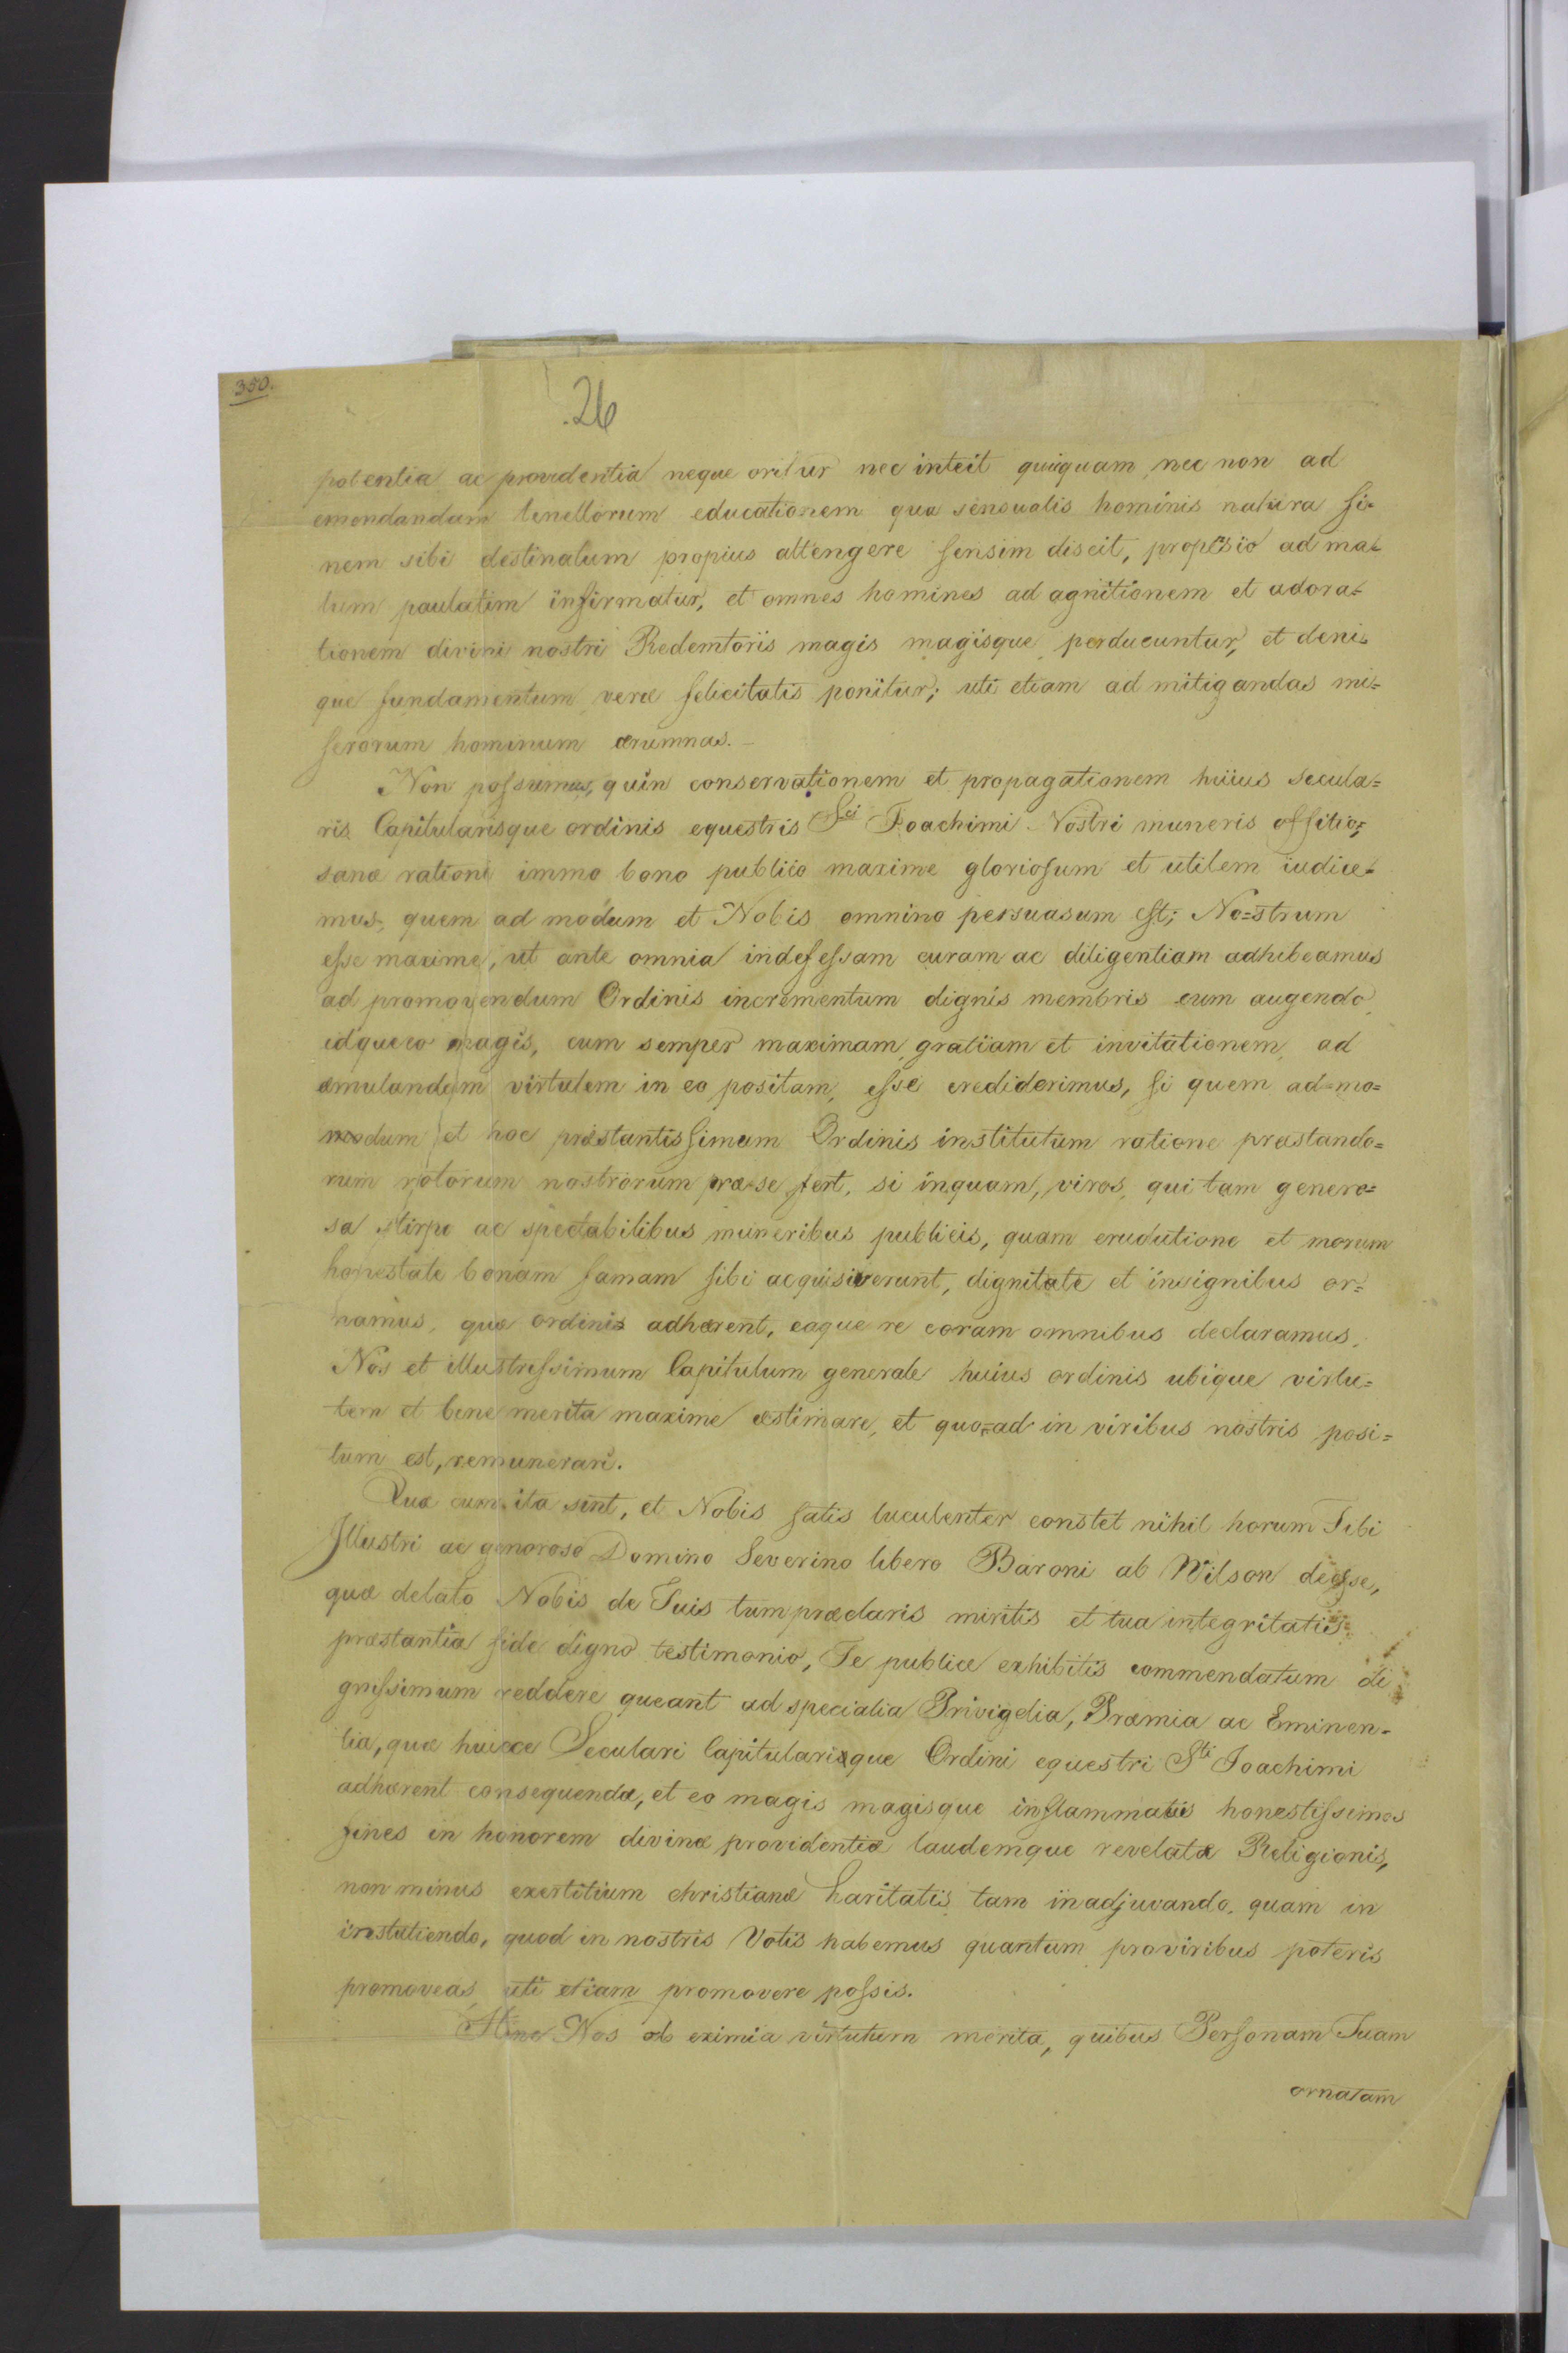 350.
26
potentia ac providentia neque oritur nec inteit quiquam, nec non ad
emendandum tenellorum educationem qua sensualis hominis natura fi-
nem sibi destinatum propius attengere sensim discit, propesio ad ma-
lum paulatim infirmatur, et omnes homines ad agnitionem et adora-
tionem divini nostri Redemtoris magis magisque perducuntur, et deni-
que fundamentum veræ felicitatis ponitur; uti etiam ad mitigandas mi=
serorum hominum ærumnas. -
Non possumus, quin conservationem et propagationem huius secula=
ris Capitularisque ordinis equestris Sci Joachimi Nostri muneris offitio;
sanæ rationi immo bono publico maxime gloriosum et utilem iudice-
mus, quem ad modum et Nobis omnino persuasum est; No=strum
esse maxime, ut ante omnia indefessam curam ac diligentiam adhibeamus
ad promovendum Ordinis incrementum dignis membris eum augendo
idque eo magis, cum semper maximam gratiam et invitationem ad
æmulandum virtutem in eo positam esse crediderimus, si quem ad=mo=
dum et hoc præstantissimum Ordinis institutum ratione præstando=
rum votorum nostrorum præ-se fert, si inquam, viros, qui tam genero=
sa stirpe ac spectabilibus muneribus publicis, quam erudutione et morum
honestate bonam famam sibi acquisiverunt, dignitate et insignibus or=
namus, quæ ordinis adhærent, eaque re coram omnibus declaramus,
Nos et illustrissimum Capitulum generale huius ordinis ubique virtu=
tem et bene merita maxime æstimare, et quo=ad in viribus nostris posi=
tum est, remunerari.
Quæ cum ita sint, et Nobis satis luculenter constet nihil horum Tibi
Illustri ac generoso Domino Severino libero Baroni ab Wilson deesse,
quæ delato Nobis de Tuis tum præclaris miritis et tua integritatis
præstantia fide digno testimonio, Te publice exhibitis commendatum di
gnissimum reddere queant ad specialia Privigelia, Præmia ac Eminen-
tia, quæ huicce Seculari Capitularique Ordini equestri Sti Joachimi
adhærent consequenda, et eo magis magisque inflammatus honestissimos
fines in honorem divinæ providentiæ laudemque revelatæ Religionis,
non minus exertitium christianæ Caritatis tam in adjuvando, quam in
instutiendo, quod in nostris Votis habemus quantum proviribus poteris
promoveas, uti etiam promovere possis.
Hinc Nos ob eximia virtutum merita, quibus Personam Tuam
ornatam